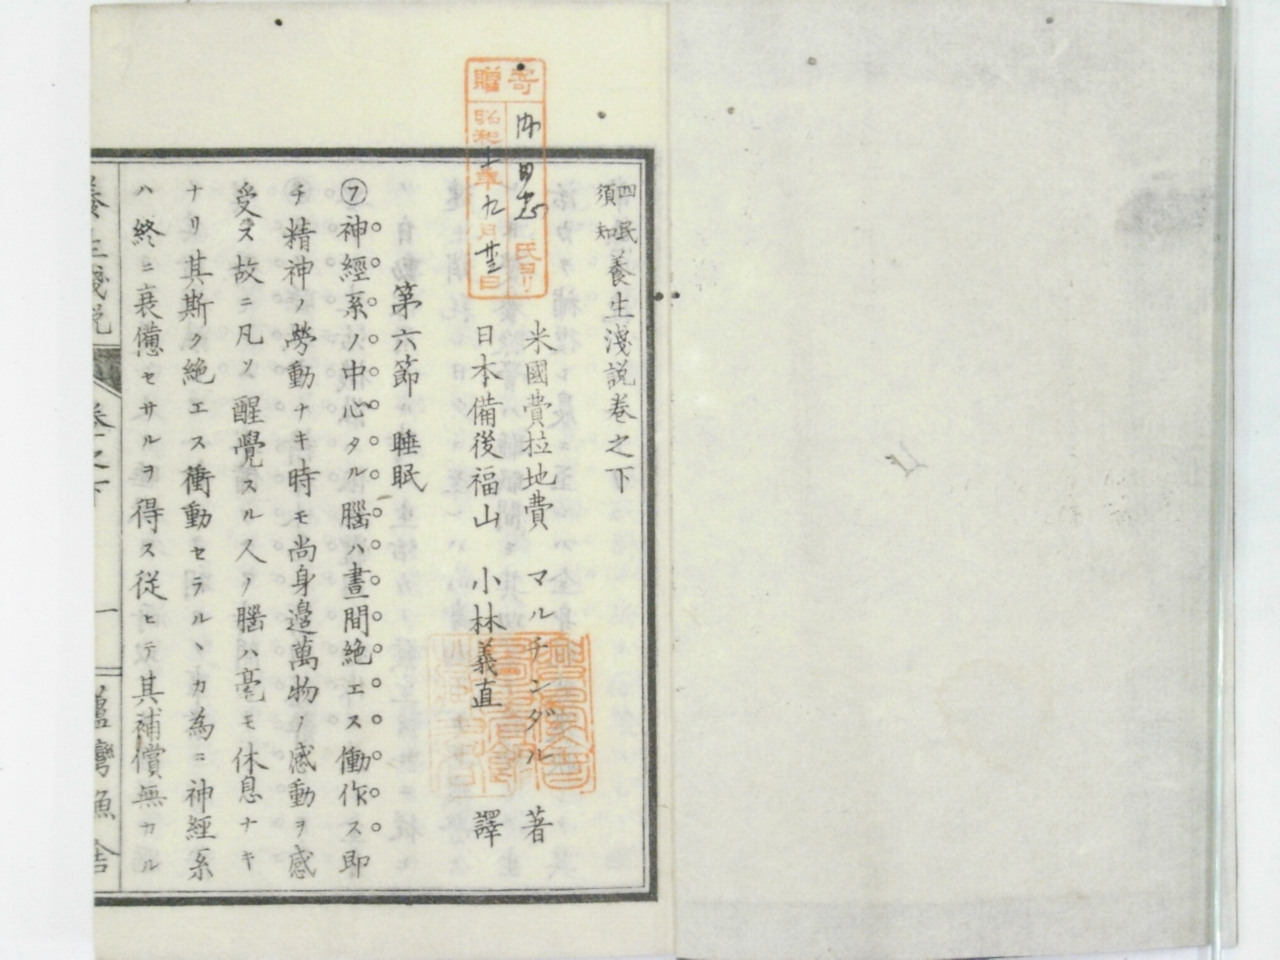 四民須知養生淺説卷之下
米國費拉地費 マルチンダル 著
日本備後福山 小林義直 譯
第六節 睡眠
㋐神經系ノ中心タル腦ハ晝間絶エス働作ス即
チ精神ノ勞動ナキ時モ尚身邉萬物ノ感動ヲ感
受ス故ニ凡ソ醒覺スル人ノ腦ハ毫モ休息ナキ
ナリ其斯ク絶エス衝動セラルヽカ為ニ神經系
ハ終ニ衰憊セサルヲ得ス從ヒテ其補償無カル
寄贈
昭和十年九月廿三日
氏ヨリ